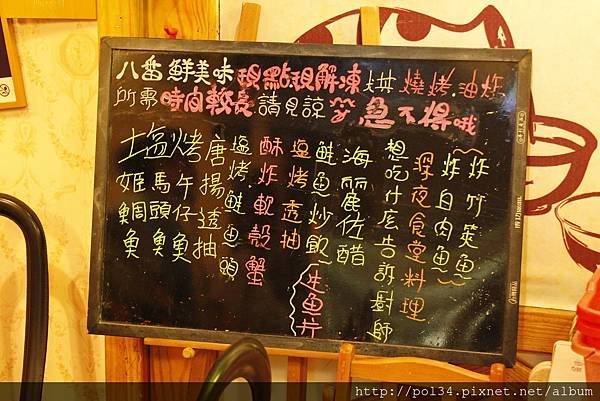 八番鮮美味現點現解凍烘燒烤油炸
所需時間較長請見諒 急不得哦
炸竹筴魚
炸白肉魚
深夜食堂料理
想吃什庅告訴廚師
海麗佐醋
鮭魚炒飯
生魚片
塩烤透抽
酥炸軟殼蟹
塩烤鮭魚頭
唐揚透抽
塩烤
午仔魚
馬頭魚
姬鯛魚
http://pol34.pixnet.net/album